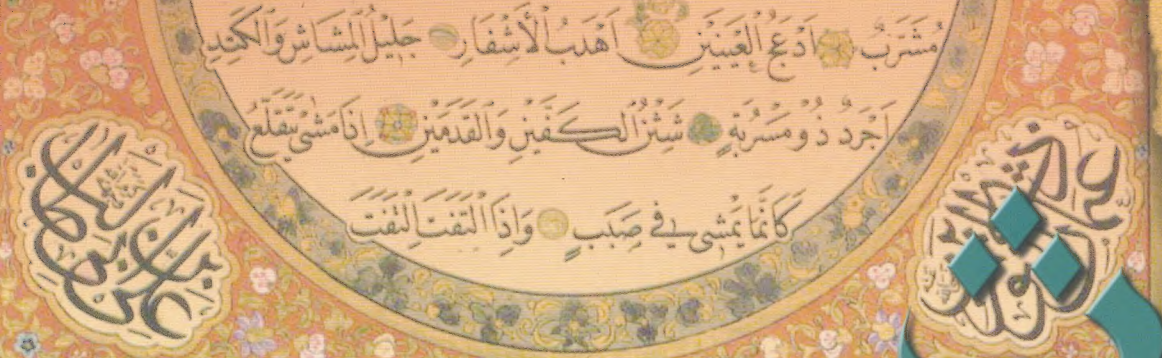 مُشَرَّبٌ اَدْعَجُ الْعَيْنَيْنِ اَهْدَبُ الْأَشْفَارِ جَلِيلُ الْمُشَاشِ وَالْكَتَدِ
اَجْرَدُ ذُو مَسْرُبَةٍ شَثْنُ الْكَفَّيْنِ وَالْقَدَمَيْنِ اِذَا مَشٰى يَتَقَلَّعُ
كَاَنَّمَا يَمْشِي فِي صَبَبٍ وَاِذَا الْتَفَتَ الْتَفَتَ